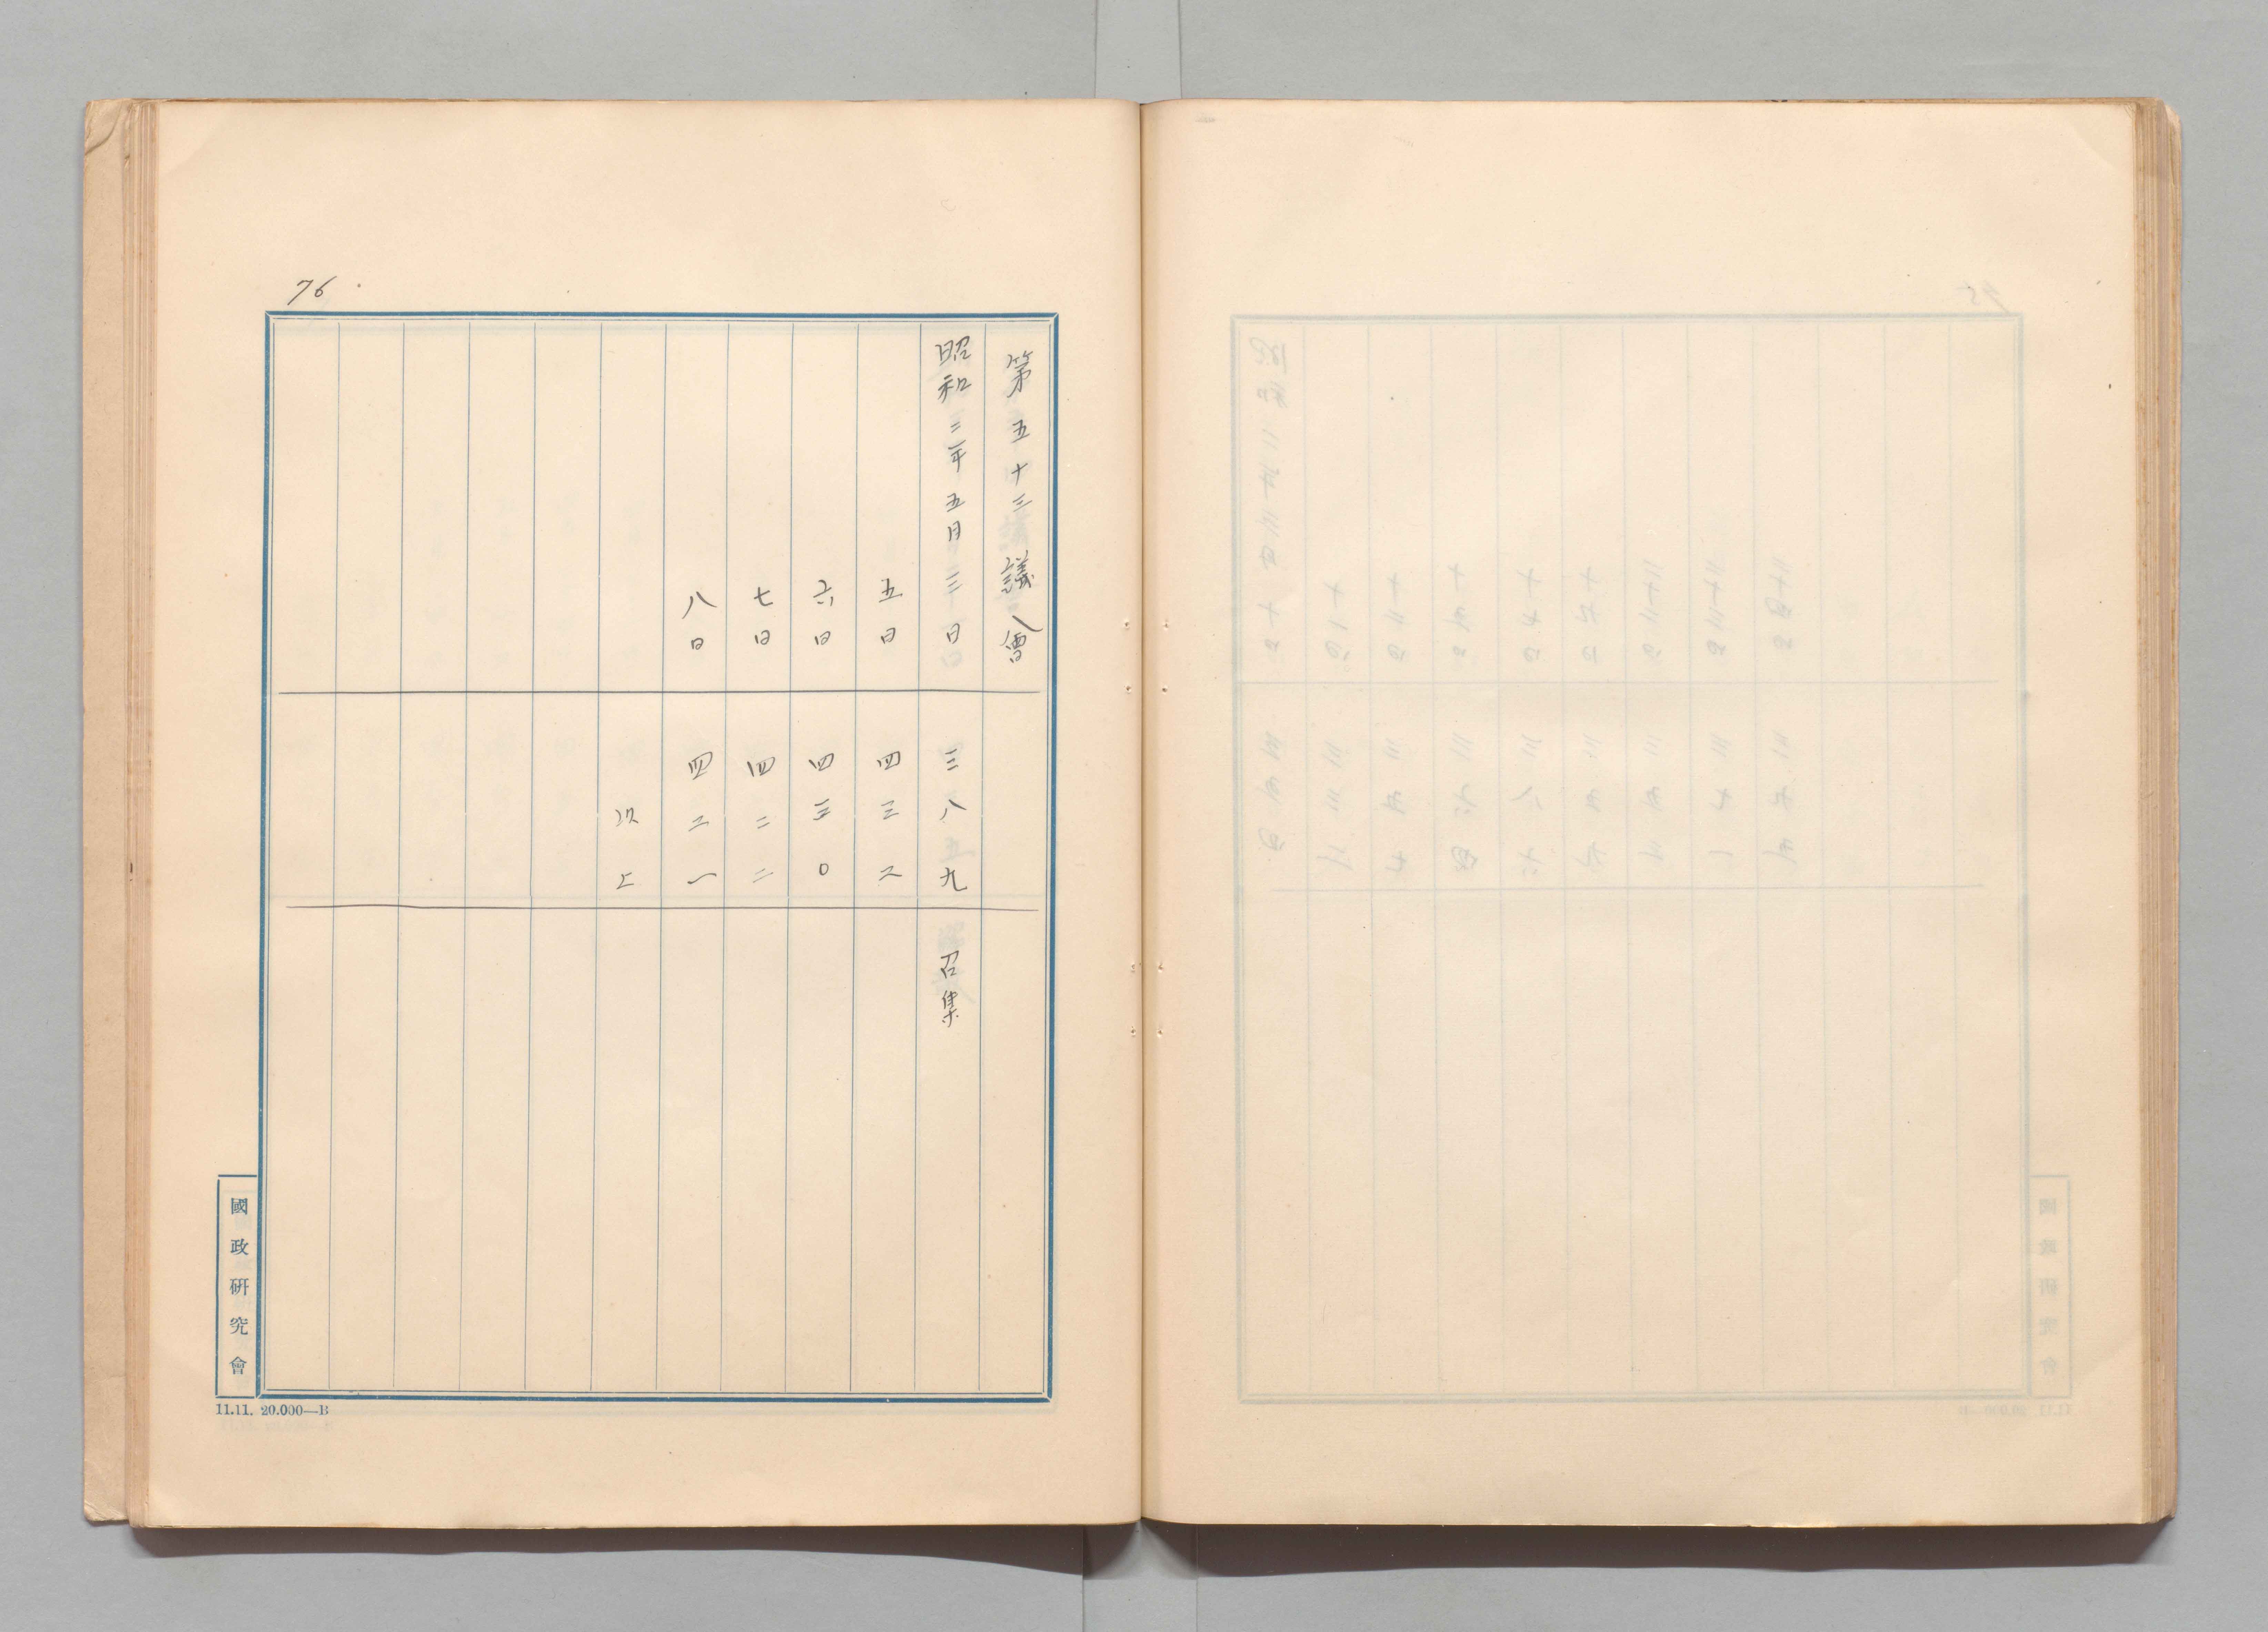 76
第五十三議會
昭和二年五月三日 三八九 召集
五日 四三二
六日 四三〇
七日 四二二
八日 四二一
以上
國政研究會
11.11. 20.000—B